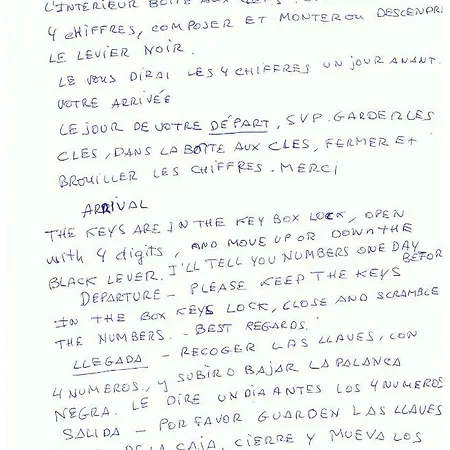 L'INTERIEUR BOITE AUX CLES
4 CHIFFRES, COMPOSER ET MONTER OU DESCENDRE
LE LEVIER NOIR.
LE VOUS DIRAI LES 4 CHIFFRES UN JOUR AVANT.
VOTRE ARRIVÉE
LE JOUR DE VOTRE DÉPART, SVP. GARDER LES
CLES, DANS LA BOITE AUX CLES, FERMER ET
BROUILLER LES CHIFFRES. MERCI
ARRIVAL
THE KEYS ARE IN THE KEY BOX LOCK, OPEN
with 4 digits, AND MOVE UP OR DOWN THE
BLACK LEVER. I'LL TELL YOU NUMBERS ONE DAY BEFOR
DEPARTURE - PLEASE KEEP THE KEYS
IN THE BOX KEYS LOCK, CLOSE AND SCRAMBLE
THE NUMBERS. - BEST REGARDS.
LLEGADA - RECOGER LAS LLAVES, CON
4 NUMEROS, Y SUBIR O BAJAR LA PALANCA
NEGRA. LE DIRE UN DIA ANTES LOS 4 NUMEROS
SALIDA - POR FAVOR GUARDEN LAS LLAVES
DE LA CAJA, CIERRE Y MUEVA LOS